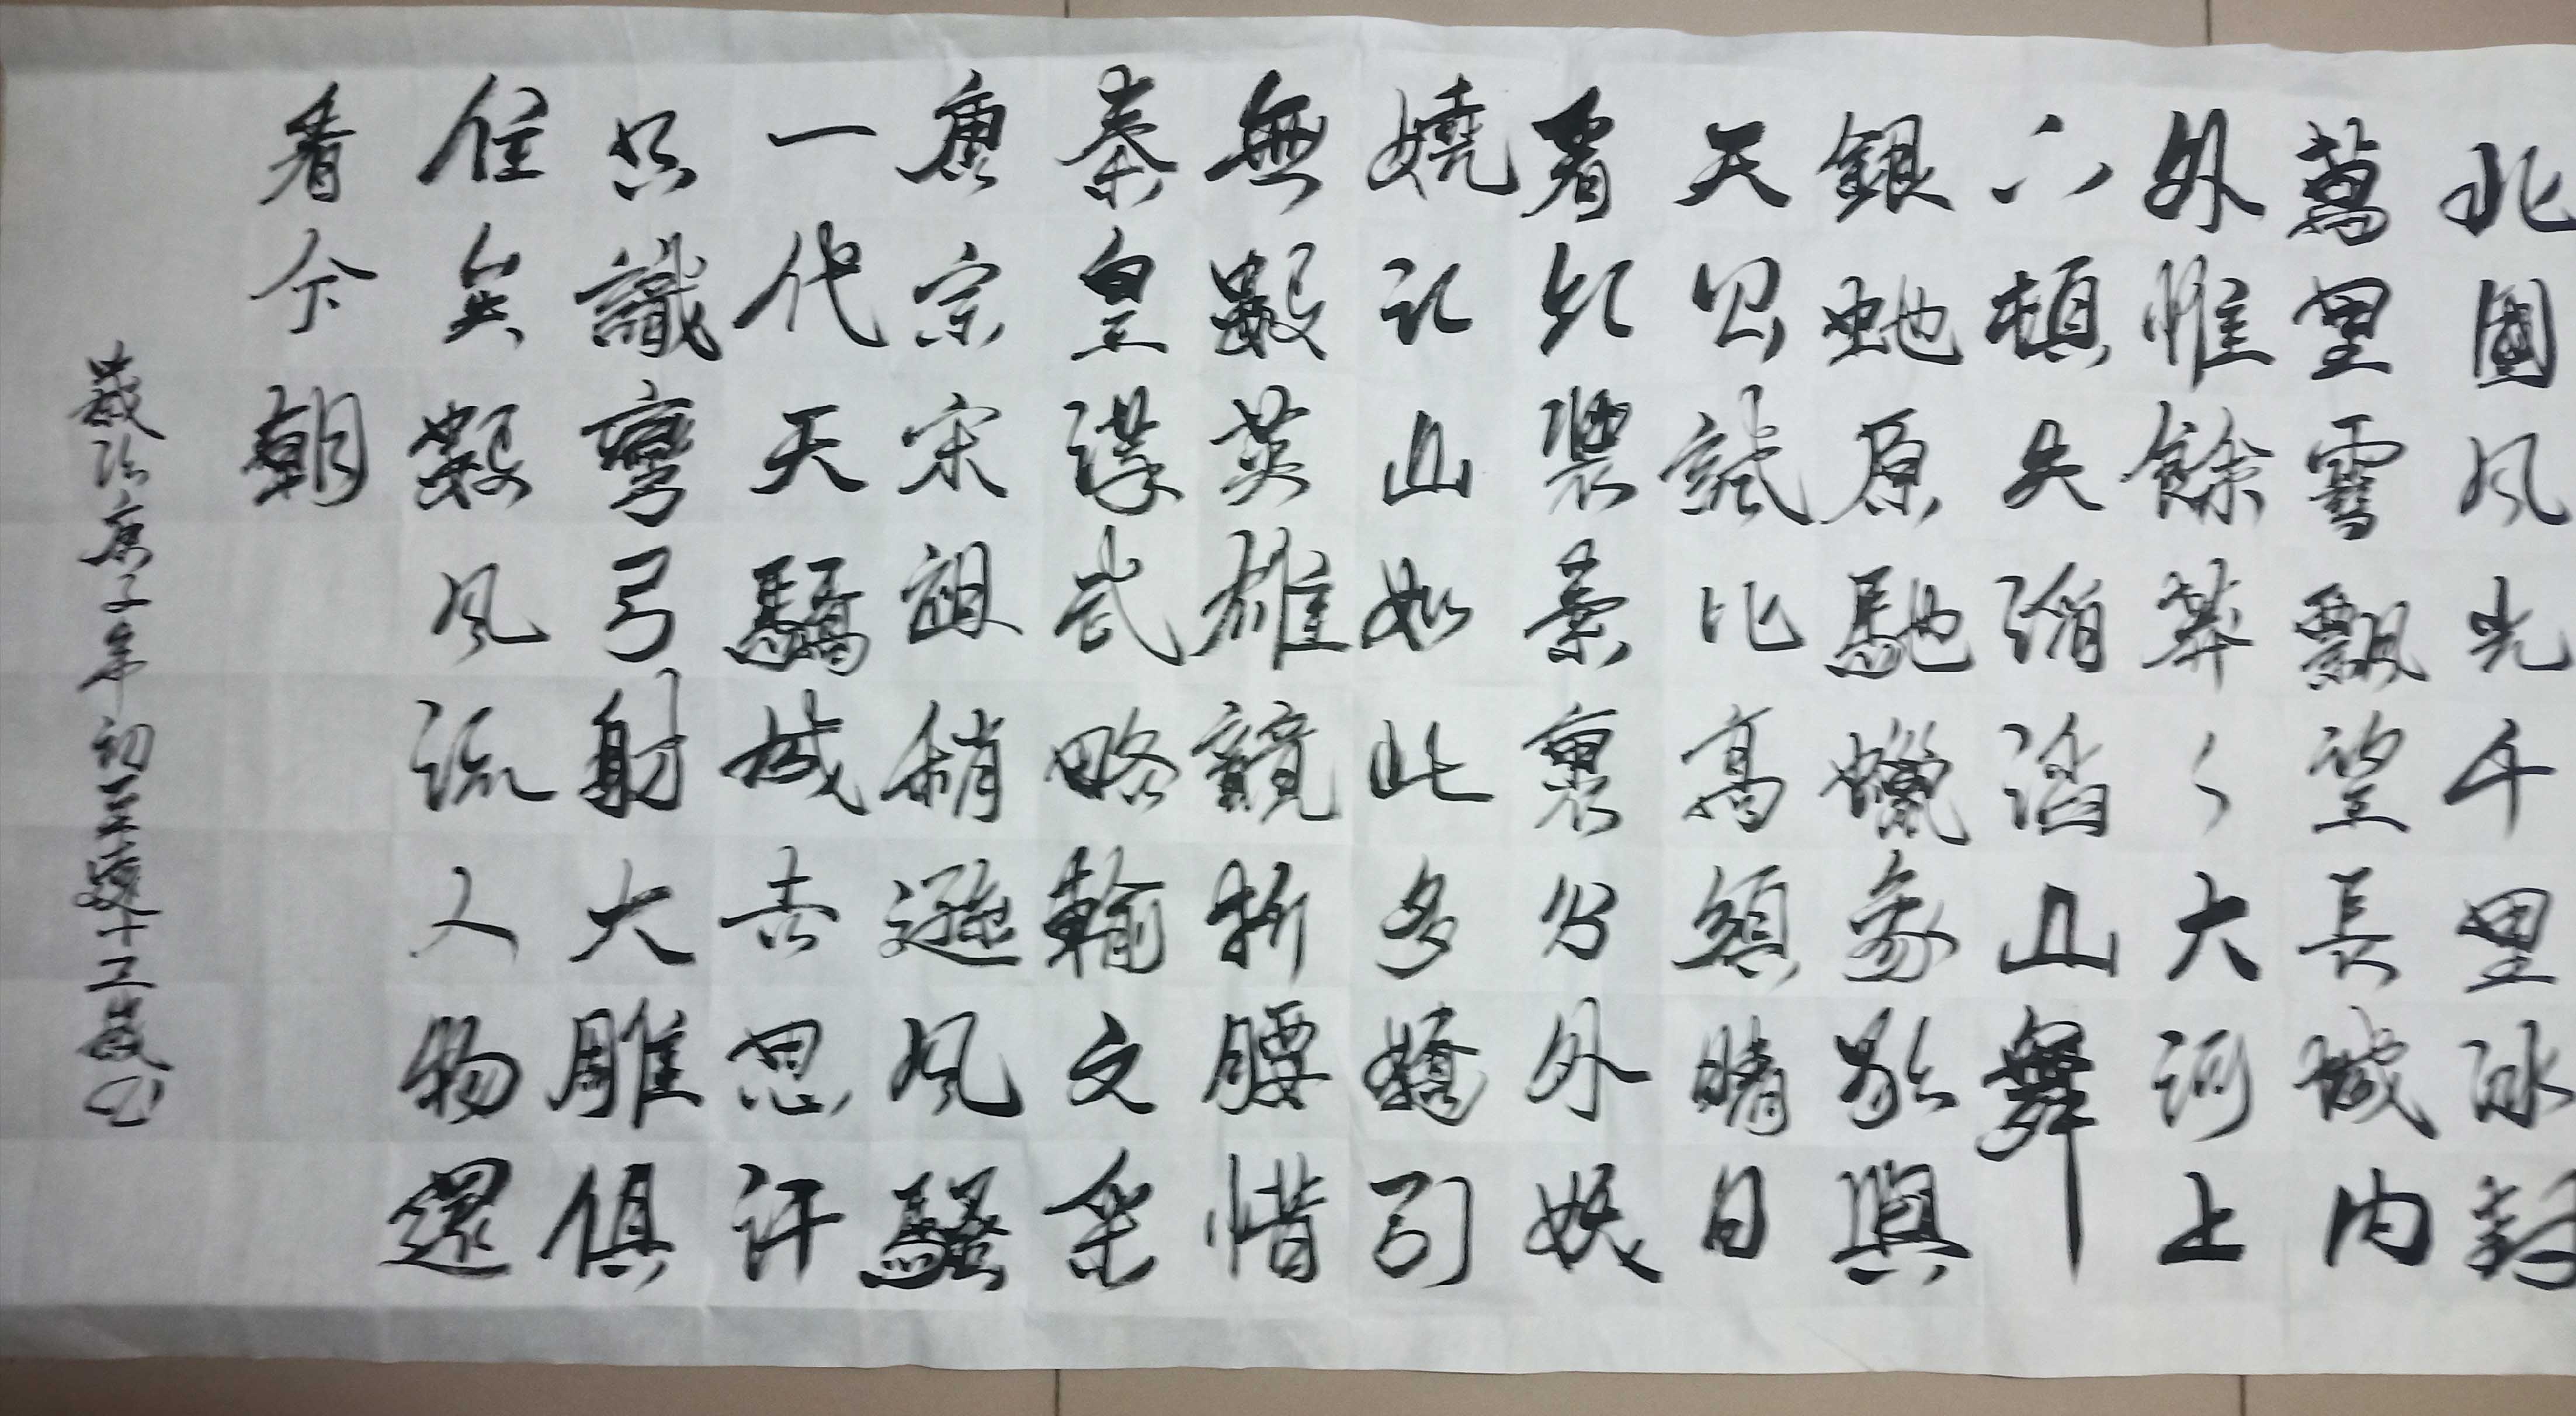 北國風光千里冰封
萬里雪飄望長城内
外惟餘莽々大河上
下頓失滔滔山舞
銀蛇原馳蠟象欲與
天公試比高須晴日
看紅裝素裹分外妖
嬈江山如此多嬌引
無數英雄競折腰惜
秦皇漢武略輸文采
唐宗宋祖稍遜風騷
一代天驕城吉思汗
只識彎弓射大雕俱
往矣數風流人物還
看今朝
歲次庚子年初三